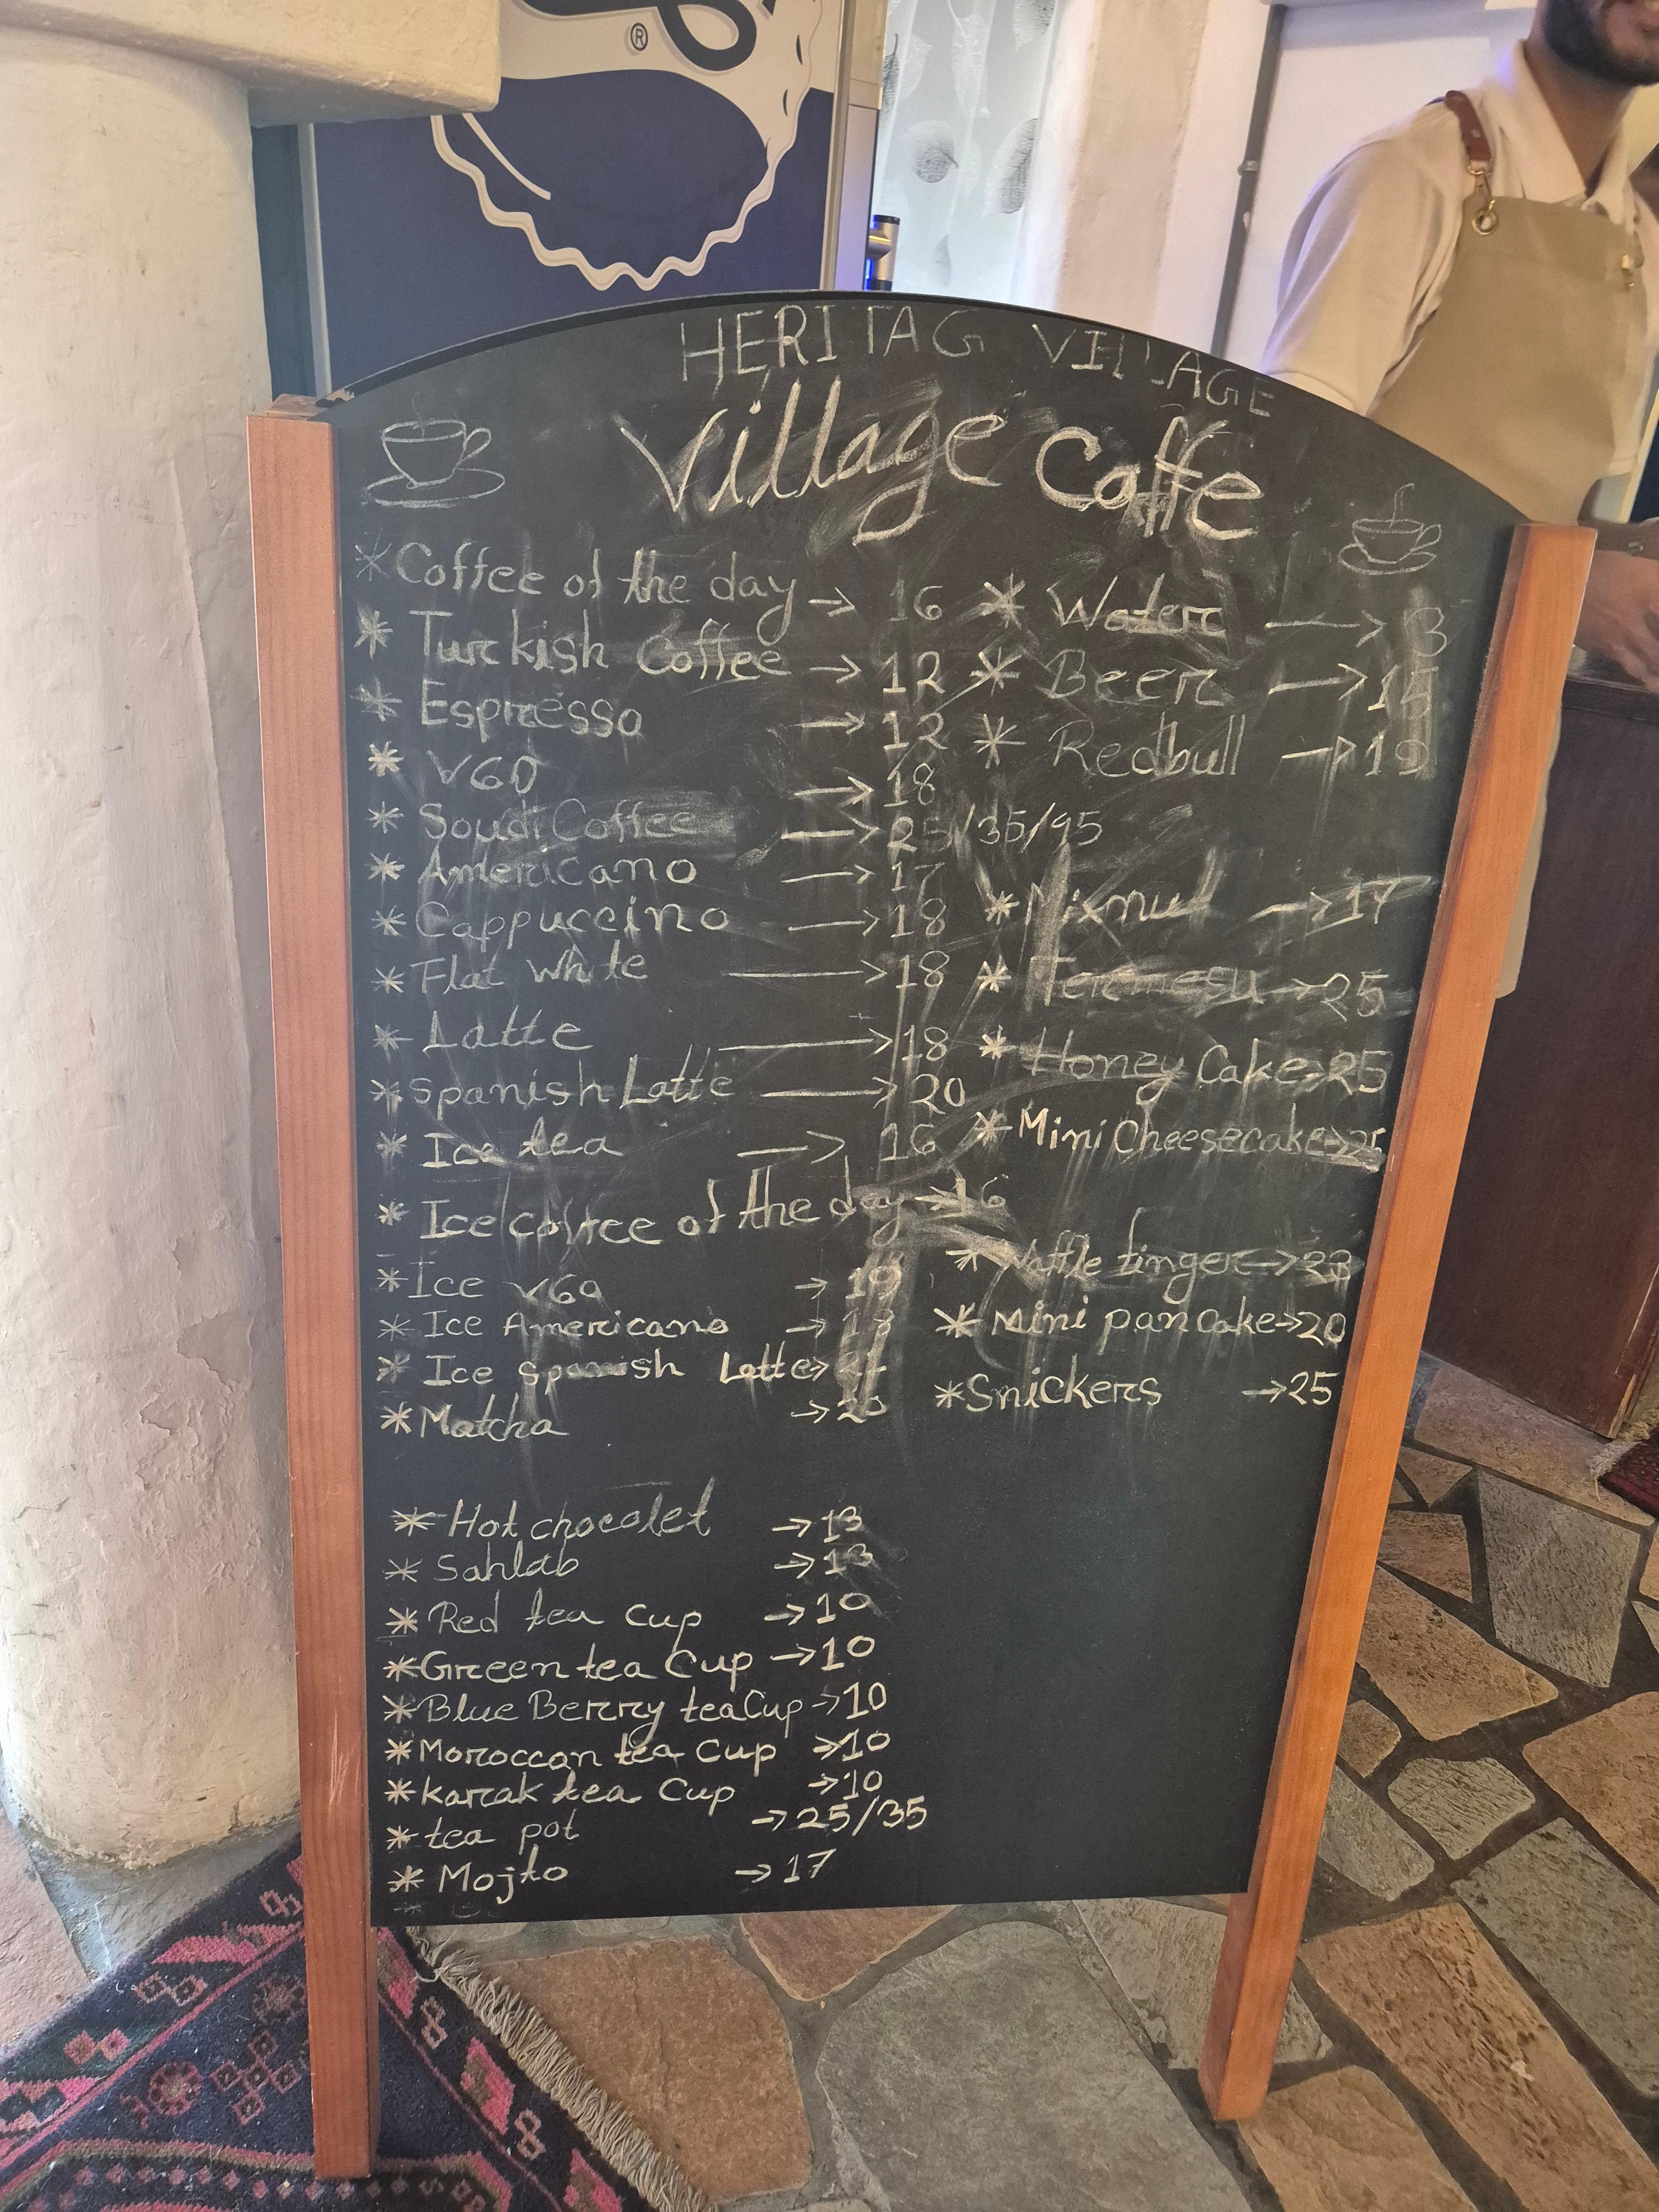 ®
HERITAG VILLAGE
Village Caffe
* Coffee of the day → 16
* Turkish Coffee → 12
* Espresso → 12
* V60 → 18
* Soudi Coffee → 25/35/95
* Americano → 17
* Cappuccino → 18
* Flat white → 18
* Latte → 18
* Spanish Latte → 20
* Ice tea → 16
* Ice coffee of the day → 16
* Ice v60 → 19
* Ice Americano →
* Ice Spanish Latte →
* Matcha →
* Hot chocolet → 13
* Sahlab → 13
* Red tea Cup → 10
* Green tea Cup → 10
* Blue Berry tea Cup → 10
* Moroccan tea Cup → 10
* karak tea Cup → 10
* tea pot → 25/35
* Mojto → 17
* Water → 3
* Beer → 15
* Redbull → 19
* Mixnut → 17
* → 25
* Honey Cake → 25
* Mini Cheesecake → 25
* Waffle finger →
* Mini pan Cake → 20
* Snickers → 25